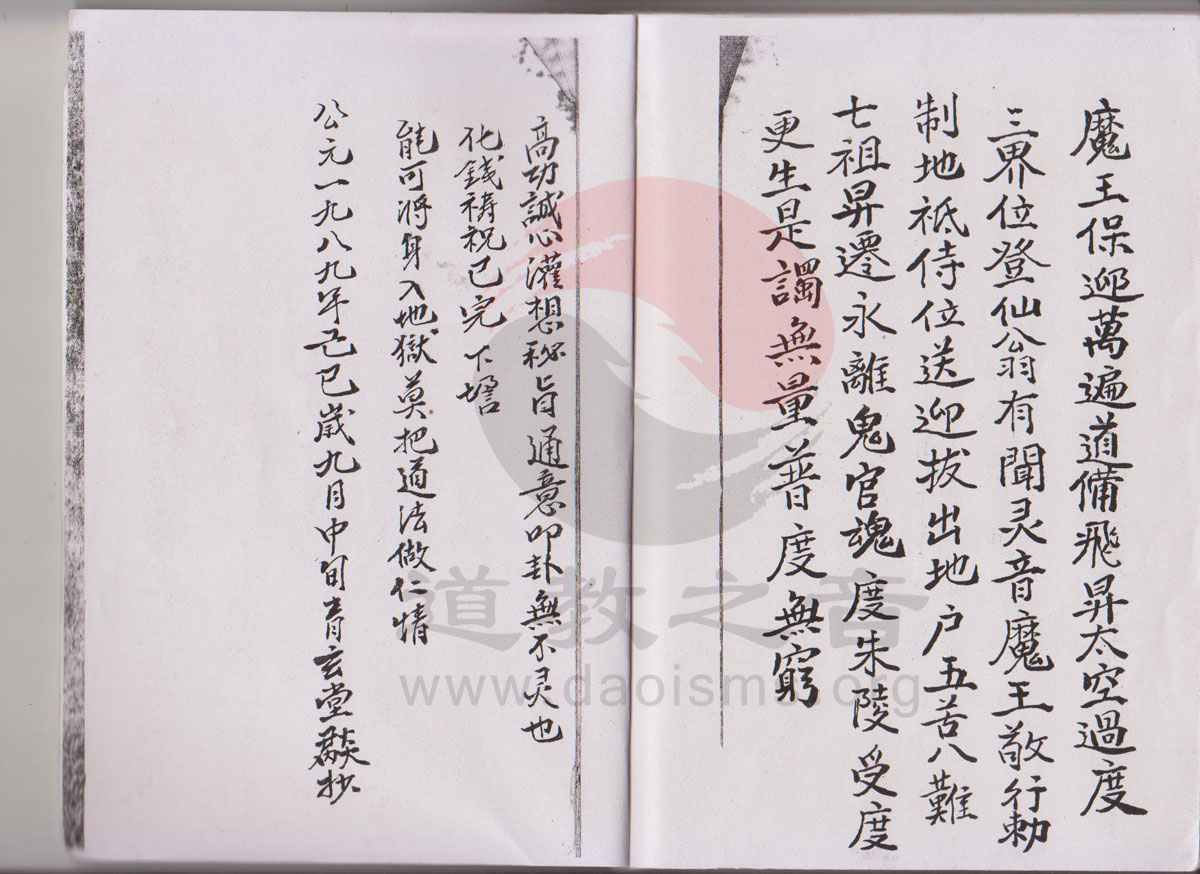 魔王保迎萬遍道備飛昇太空過度
三界位登仙公羽有聞灵音魔王敬行勅
制地祇侍位送迎拔出地户五苦八難
七祖昇遷永離鬼官魂度朱陵受度
更生是謂無量普度無窮
高功誠心灌想秘旨通意叩卦無不灵也
化錢祷祝已完下壇
能可将身入地獄莫把道法做仁情
公元一九八九年己巳歲九月中旬青玄堂抄
道教之音
www.daoisms.org